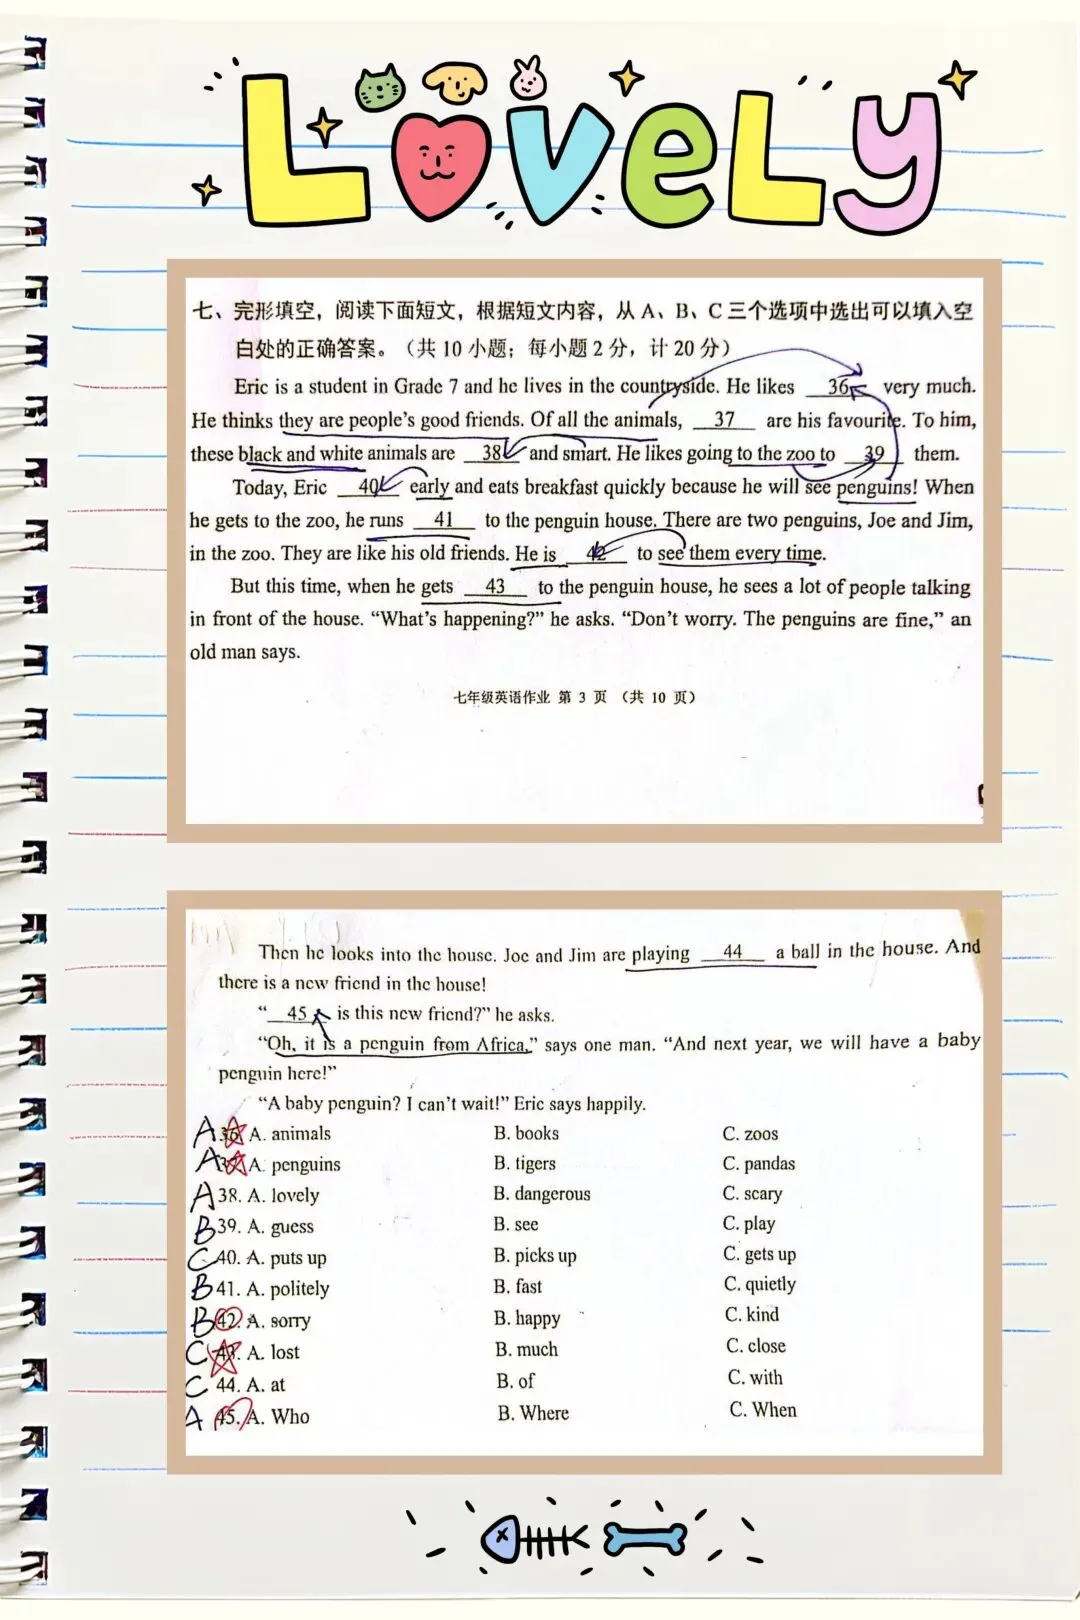 LOVELY
七、完形填空，阅读下面短文，根据短文内容，从 A、B、C 三个选项中选出可以填入空
白处的正确答案。（共 10 小题；每小题 2 分，计 20 分）
Eric is a student in Grade 7 and he lives in the countryside. He likes 36 very much.
He thinks they are people's good friends. Of all the animals, 37 are his favourite. To him,
these black and white animals are 38 and smart. He likes going to the zoo to 39 them.
Today, Eric 40 early and eats breakfast quickly because he will see penguins! When
he gets to the zoo, he runs 41 to the penguin house. There are two penguins, Joe and Jim,
in the zoo. They are like his old friends. He is 42 to see them every time.
But this time, when he gets 43 to the penguin house, he sees a lot of people talking
in front of the house. “What's happening?” he asks. “Don't worry. The penguins are fine,” an
old man says.
七年级英语作业 第 3 页 （共 10 页）
Then he looks into the house. Joe and Jim are playing 44 a ball in the house. And
there is a new friend in the house!
“ 45 is this new friend?” he asks.
“Oh, it is a penguin from Africa,” says one man. “And next year, we will have a baby
penguin here!”
“A baby penguin? I can't wait!” Eric says happily.
A 36. A. animals B. books C. zoos
A 37. A. penguins B. tigers C. pandas
A 38. A. lovely B. dangerous C. scary
B 39. A. guess B. see C. play
C 40. A. puts up B. picks up C. gets up
B 41. A. politely B. fast C. quietly
B 42. A. sorry B. happy C. kind
C 43. A. lost B. much C. close
C 44. A. at B. of C. with
A 45. A. Who B. Where C. When